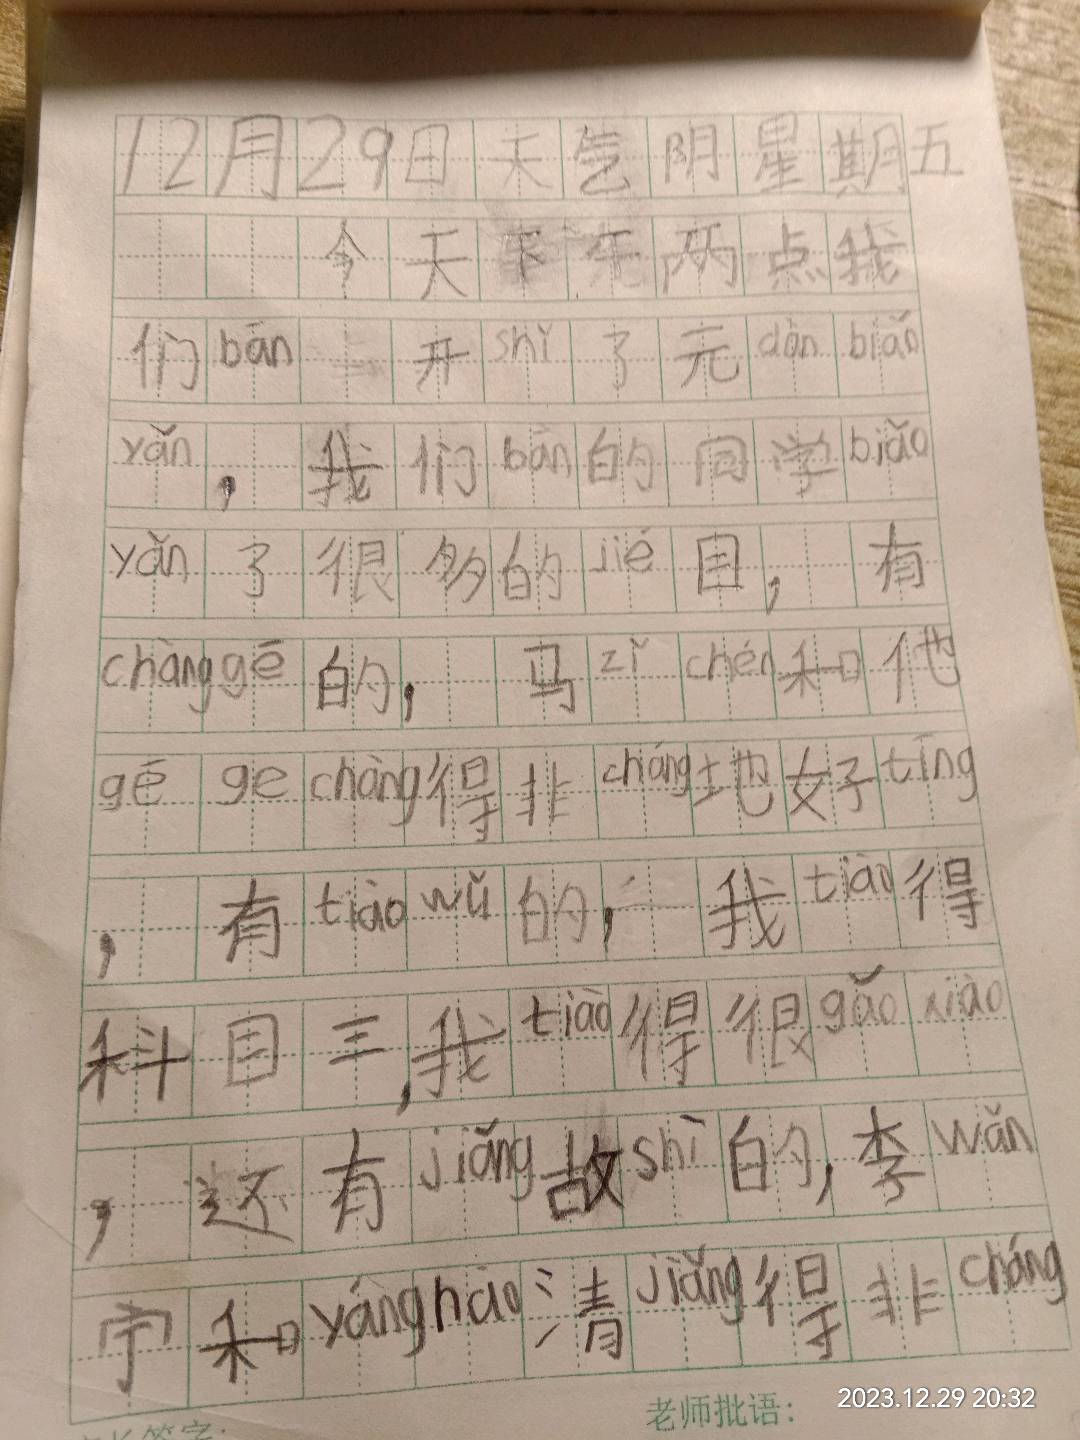 12月29日天气阴星期五
今天下午两点我
们bān开shǐ了元dàn biǎo
yǎn，我们bān的同学biǎo
yǎn了很多的jié目，有
chàng gē的，马zǐ chén和他
gē ge chàng得非cháng地好tīng
，有tiào wǔ的，我tiào得
科目三，我tiào得很gǎo xiào
，还有jiǎng故shì的，李wǎn
宁和yáng hào清jiǎng得非cháng
老师批语：
2023.12.29 20:32